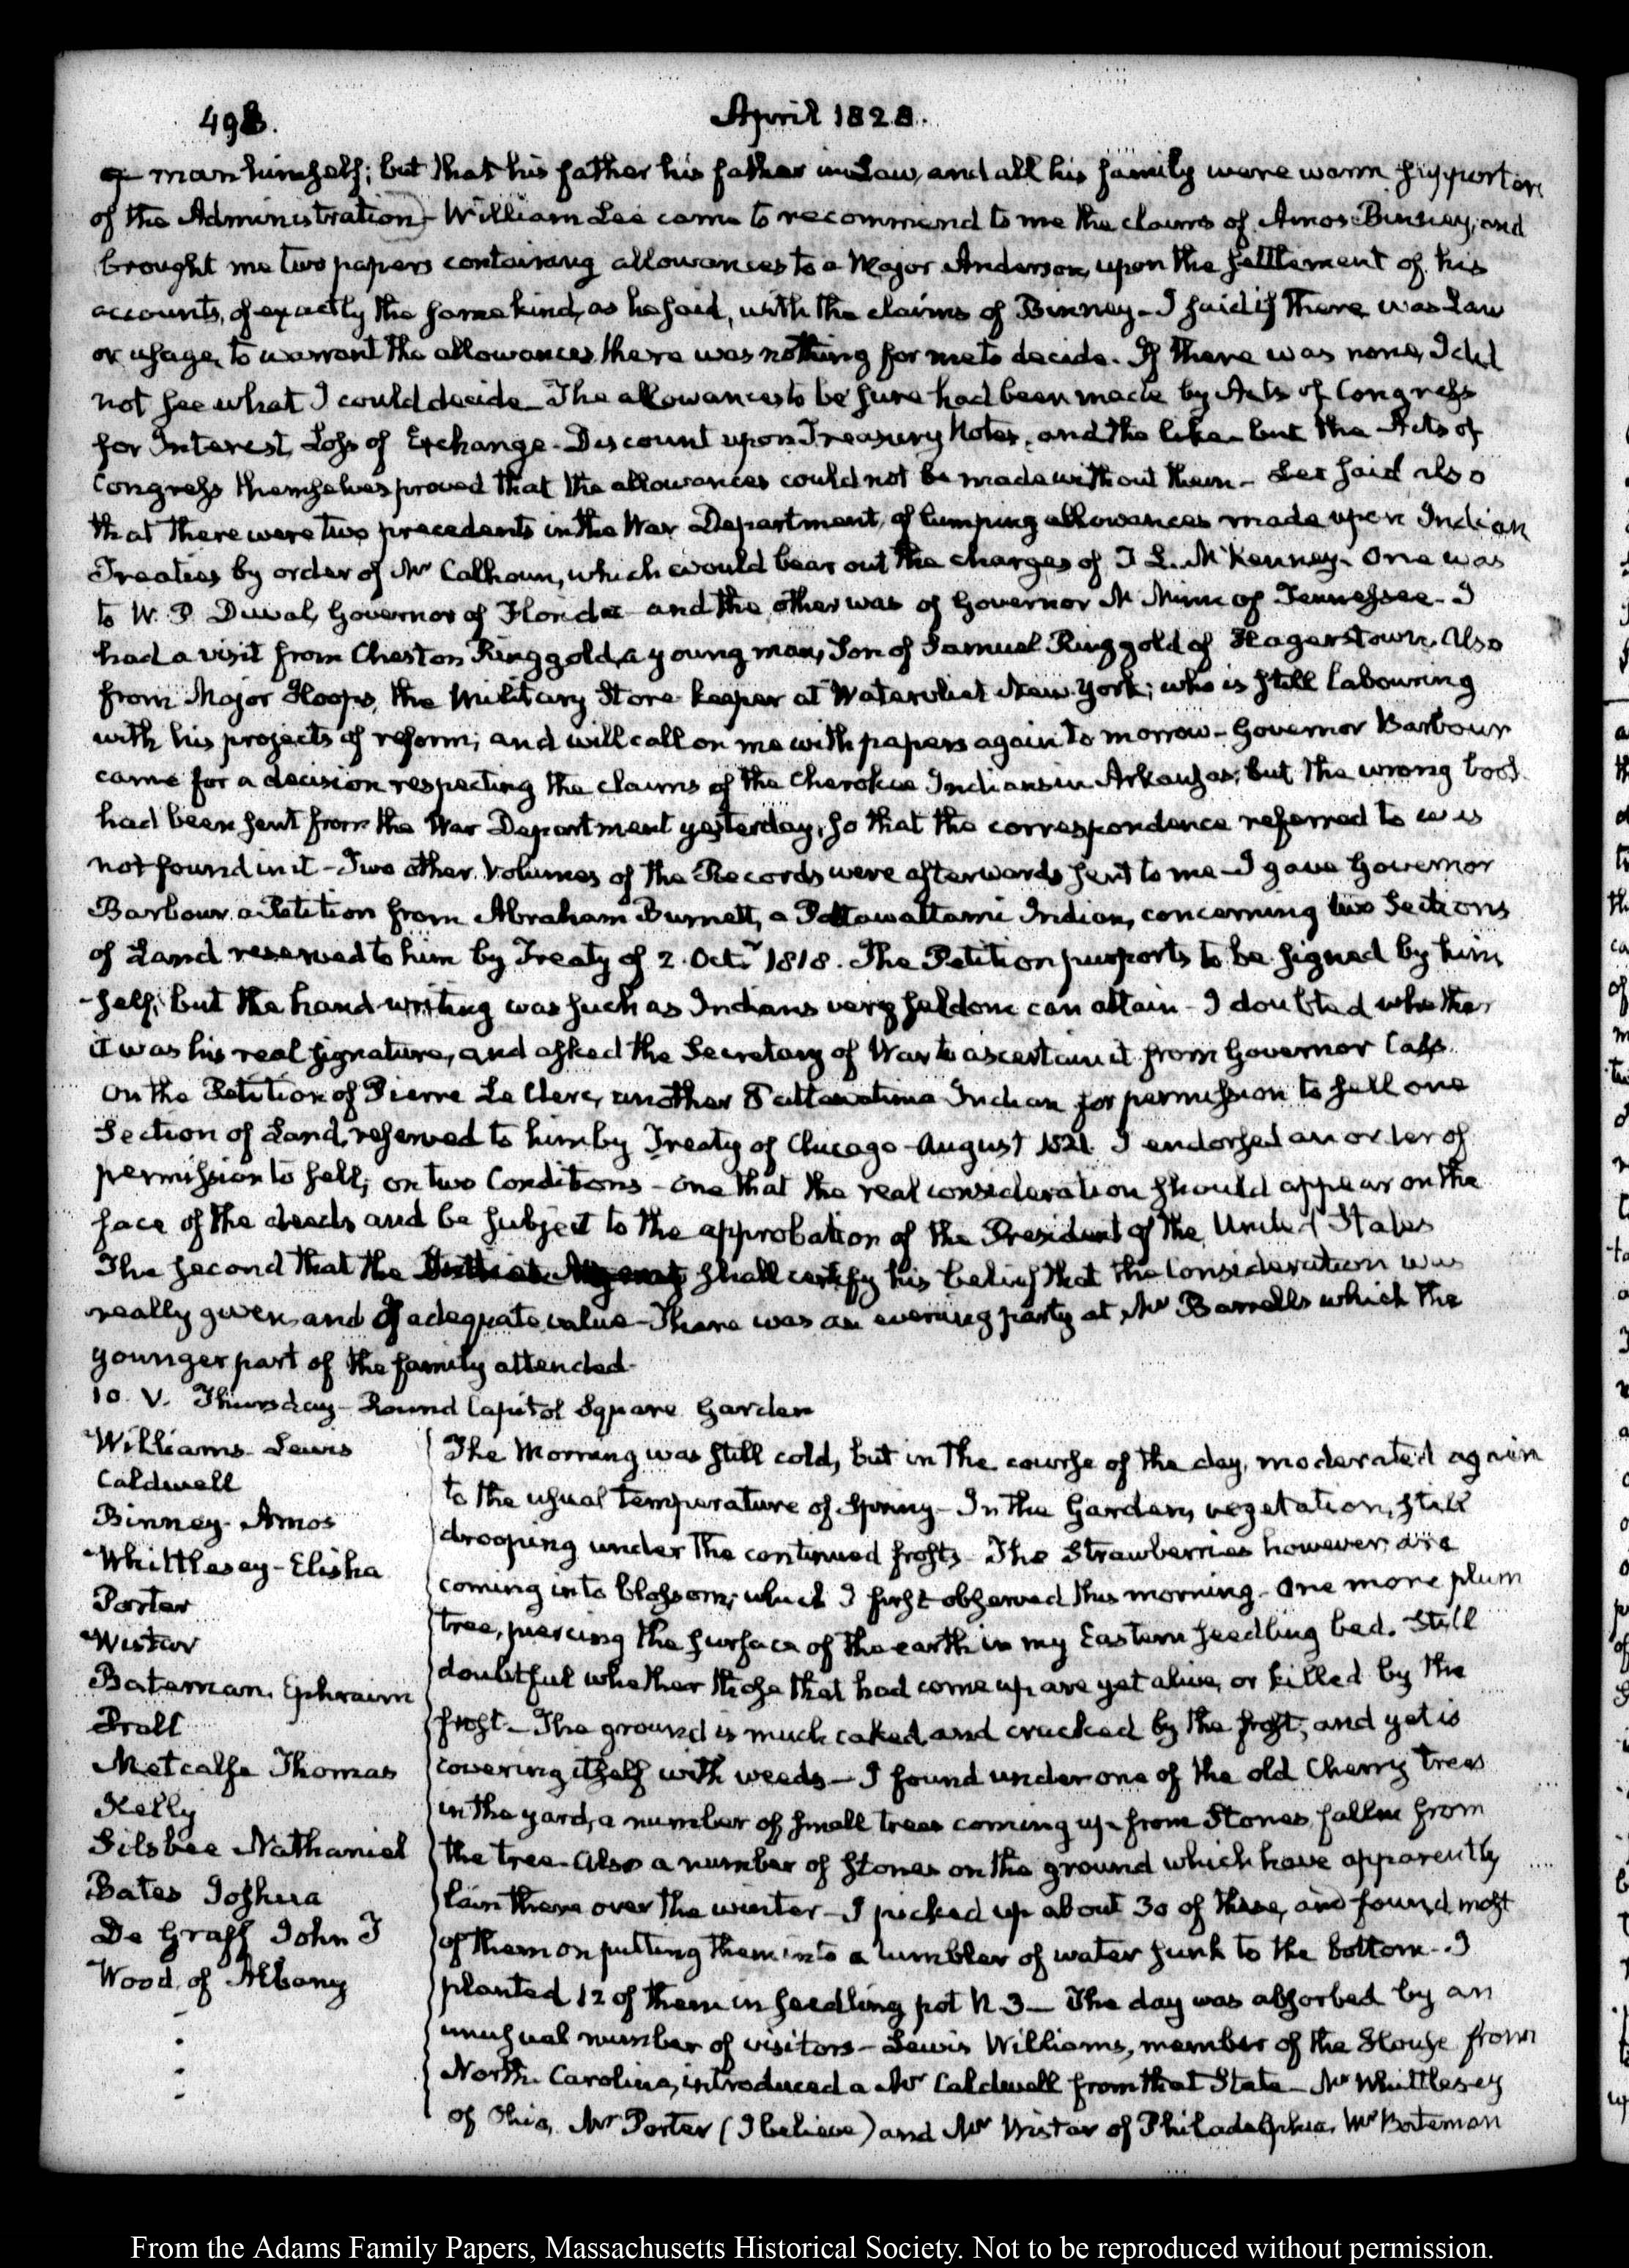 498.
April 1828.
man himself; but that his father his father in Law, and all his family were warm supporters
of the Administration - William Lee came to recommend to me the claims of Amos Binney, and
brought me two papers containing allowances to a Major Anderson, upon the settlement of his
accounts, of exactly the same kind, as he said, with the claims of Binney - I said if there was Law
or usage, to warrant the allowances, there was nothing for me to decide. If there was none, I did
not see what I could decide - The allowances to be sure had been made by Acts of Congress
for Interest, Loss of Exchange - Discount upon Treasury Notes, and the like - but the Acts of
Congress themselves proved that the allowances could not be made without them - Lee said also
that there were two precedents in the War Department, of lumping allowances made upon Indian
Treaties by order of Mr Calhoun, which would bear out the charges of T L. McKenney - One was
to W. P. Duval, Governor of Florida - and the other was of Governor McMinn of Tennessee - I
had a visit from Cheston Ringgold, a young man, Son of Samuel Ringgold of Hagerstown. Also
from Major Hoops, the Military Store keeper at Watervliet New-York; who is still labouring
with his projects of reform; and will call on me with papers again to morrow - Governor Barbour
came for a decision respecting the claims of the Cherokee Indians in Arkansas; but the wrong book
had been sent from the War Department yesterday, so that the correspondence referred to was
not found in it - Two other Volumes of the Records were afterwards sent to me - I gave Governor
Barbour a Petition from Abraham Burnett, a Pottawattami Indian, concerning two Sections
of Land reserved to him by Treaty of 2. Octr 1818. The Petition purports to be signed by him
-self; but the hand-writing was such as Indians very seldom can attain - I doubted whether
it was his real signature, and asked the Secretary of War to ascertain it from Governor Cass.
On the Petition of Pierre Le Clerc, another Pattawatima Indian for permission to sell one
Section of Land, reserved to him by Treaty of Chicago - August 1821. I endorsed an order of
permission to sell; on two Conditions - One that the real consideration should appear on the
face of the deeds and be subject to the approbation of the President of the United States
The second that the shall certify his belief that the Consideration was
really given, and of adequate value - There was an evening party at Mr Barrell's which the
younger part of the family attended.
10. V. Thursday - Round Capitol Square. Garden
Williams Lewis
Caldwell
Binney - Amos
Whittlesey - Elisha
Porter
Wistar
Bateman. Ephraim
Pratt
Metcalfe Thomas
Kelly
Silsbee Nathaniel
Bates Joshua
De Graff John I
Wood of Albany
The Morning was still cold, but in the course of the day, moderated again
to the usual temperature of Spring - In the Garden, vegetation, still
drooping under the continued frosts - The Strawberries however are
coming into blossom; which I first observed this morning - One more plum
tree, piercing the surface of the earth in my Eastern seedling bed. Still
doubtful whether those that had come up are yet alive, or killed by the
frost. - The ground is much caked and cracked by the frost, and yet is
covering itself with weeds - I found under one of the old Cherry trees
in the yard, a number of small trees coming up from Stones fallen from
the tree. Also a number of stones on the ground which have apparently
lain there over the winter - I picked up about 30 of these, and found most
of them on putting them into a tumbler of water sunk to the bottom - I
planted 12 of them in seedling pot N. 3 - The day was absorbed by an
unusual number of visitors - Lewis Williams, member of the House from
North Carolina, introduced a Mr Caldwell from that State - Mr Whittlesey
of Ohio, Mr Porter (I believe) and Mr Wistar of Philadelphia, Mr Bateman
From the Adams Family Papers, Massachusetts Historical Society. Not to be reproduced without permission.